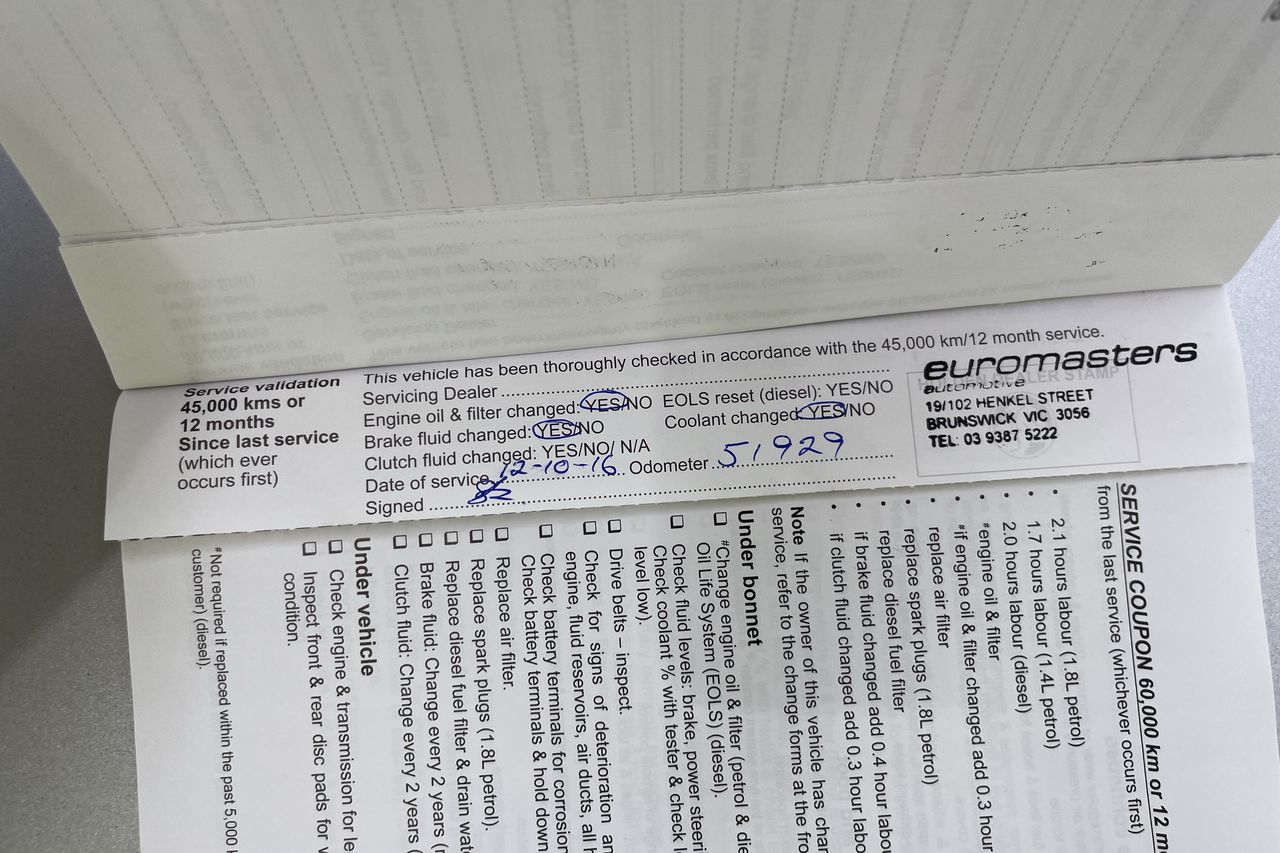 Service validation
45,000 kms or
12 months
Since last service
(which ever
occurs first)
This vehicle has been thoroughly checked in accordance with the 45,000 km/12 month service.
Servicing Dealer
Engine oil & filter changed: YES/NO EOLS reset (diesel): YES/NO
Brake fluid changed: YES/NO Coolant changed YES/NO
Clutch fluid changed: YES/NO/ N/A
Date of service 12-10-16 Odometer 51929
Signed
euromasters
automotive
19/102 HENKEL STREET
BRUNSWICK VIC 3056
TEL: 03 9387 5222
SERVICE COUPON 60,000 km or 12 m
from the last service (whichever occurs first)
• 2.1 hours labour (1.8L petrol)
• 1.7 hours labour (1.4L petrol)
• 2.0 hours labour (diesel)
• #engine oil & filter
• #if engine oil & filter changed add 0.3 hour
• replace air filter
• replace spark plugs (1.8L petrol)
• replace diesel fuel filter
• if brake fluid changed add 0.4 hour labou
• if clutch fluid changed add 0.3 hour labo
Note If the owner of this vehicle has chan
service, refer to the change forms at the fro
Under bonnet
☐ #Change engine oil & filter (petrol & die
Oil Life System (EOLS) (diesel).
☐ Check fluid levels: brake, power steeri
Check coolant % with tester & check l
level low).
☐ Drive belts – inspect.
☐ Check for signs of deterioration an
engine, fluid reservoirs, air ducts, all h
☐ Check battery terminals for corrosion
Check battery terminals & hold down
☐ Replace air filter.
☐ Replace spark plugs (1.8L petrol).
☐ Replace diesel fuel filter & drain wate
☐ Brake fluid: Change every 2 years (r
☐ Clutch fluid: Change every 2 years (
Under vehicle
☐ Check engine & transmission for le
☐ Inspect front & rear disc pads for w
condition.
#Not required if replaced within the past 5,000 k
customer) (diesel).